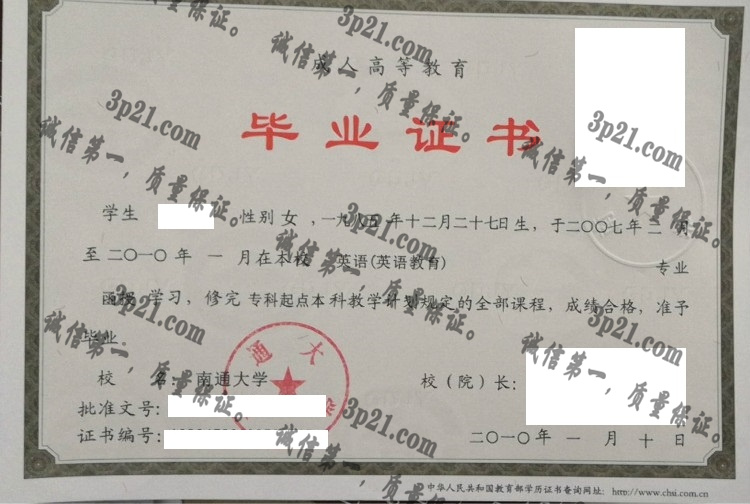 成人高等教育
毕业证书
学生 性别 女 ，一九八五年十二月二十七日生，于二〇〇七年二月
至二〇一〇年 一 月在本校 英语(英语教育) 专业
函授 学习，修完 专科起点本科教学计划规定的全部课程，成绩合格，准予
毕业。
校 名：南通大学 校（院）长：
批准文号：
证书编号： 二〇一〇年 一 月 十 日
中华人民共和国教育部学历证书查询网址：http://www.chsi.com.cn
通大
3p21.com
诚信第一，质量保证。
3p21.com
诚信第一，质量保证。
3p21.com
诚信第一，质量保证。
3p21.com
诚信第一，质量保证。
3p21.com
诚信第一，质量保证。
3p21.com
诚信第一，质量保证。
3p21.com
诚信第一，质量保证。